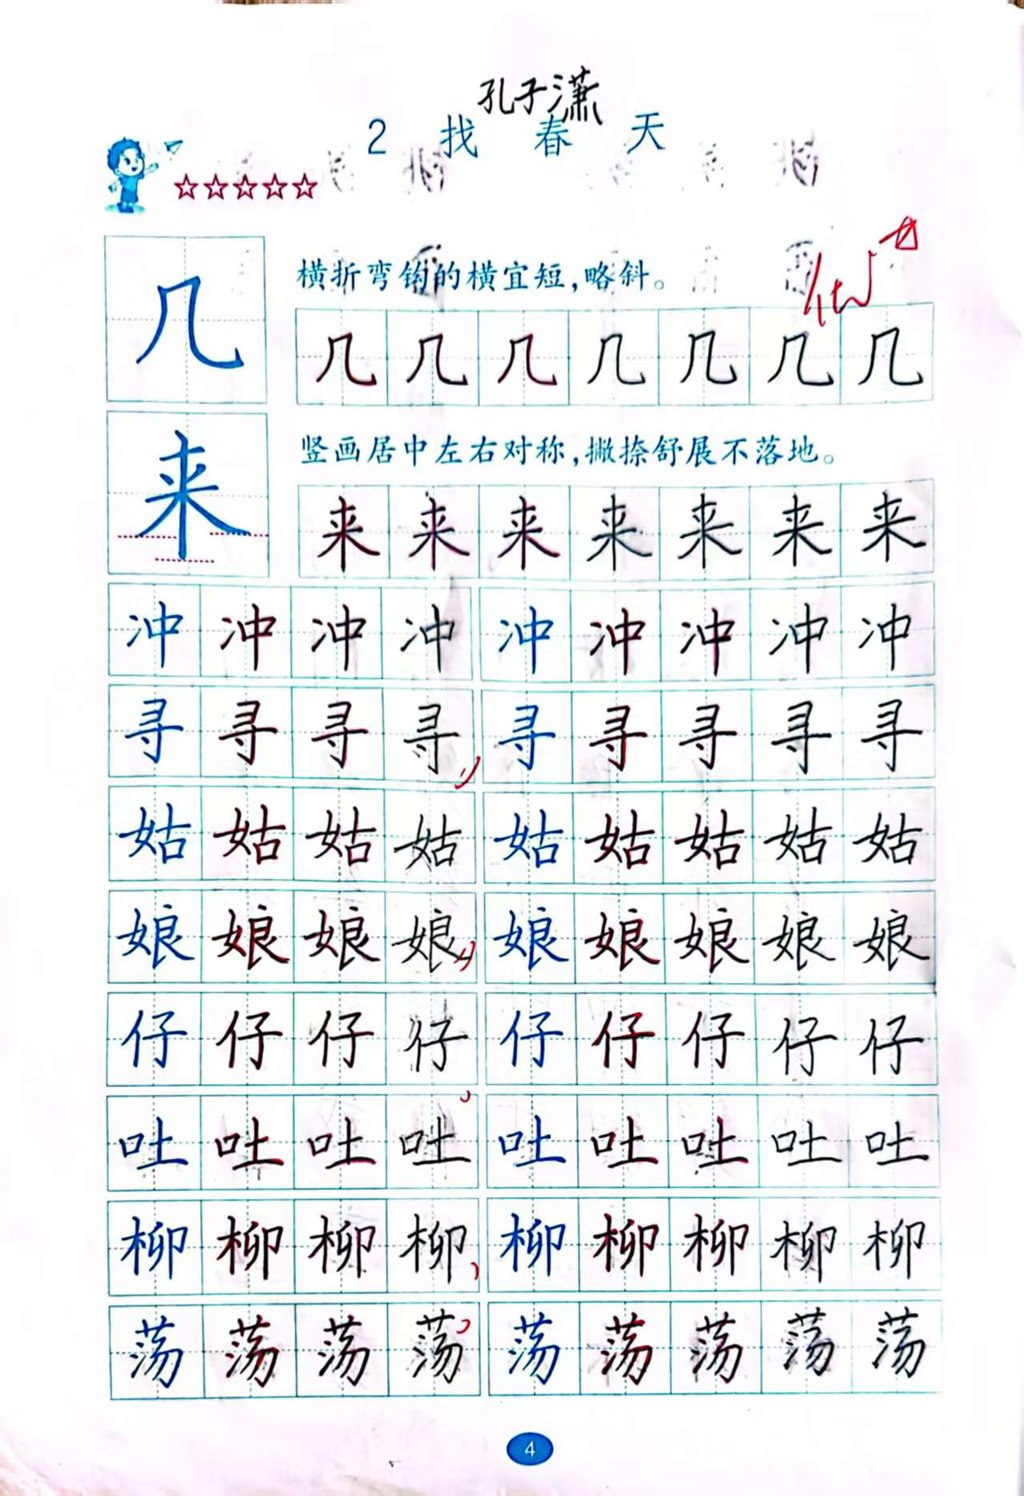 孔子潇
2 找春天
几
横折弯钩的横宜短,略斜。
优
几几几几几几几
来
竖画居中左右对称,撇捺舒展不落地。
来来来来来来来
冲冲冲冲冲冲冲冲冲
寻寻寻寻寻寻寻寻寻
姑姑姑姑姑姑姑姑姑
娘娘娘娘娘娘娘娘娘
仔仔仔仔仔仔仔仔仔
吐吐吐吐吐吐吐吐吐
柳柳柳柳柳柳柳柳柳
荡荡荡荡荡荡荡荡荡
4